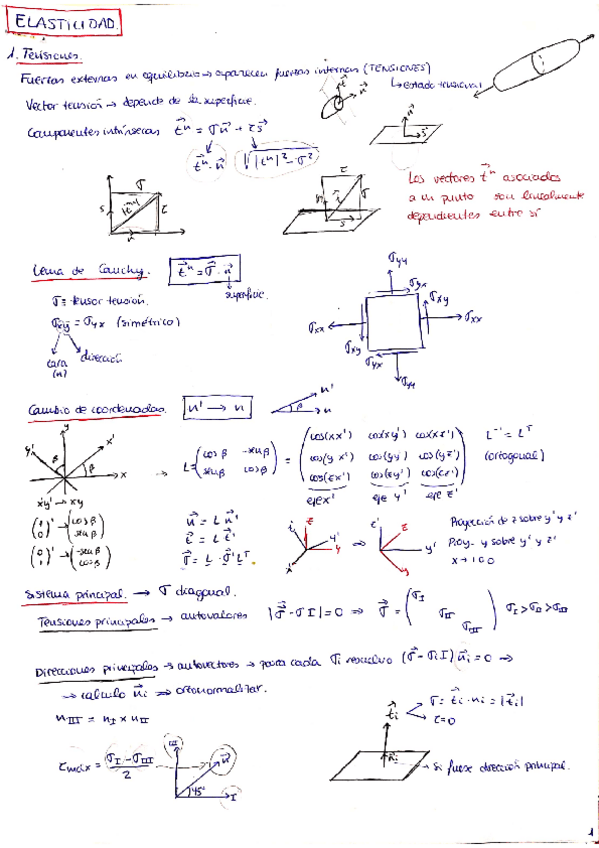 ELASTICIDAD.
1. Tensiones.
Fuerzas externas en equilibrio → aparecen fuerzas internas (TENSIONES)
↳ estado tensional
Vector tensión → depende de la superficie.
Componentes intrínsecas t⃗ⁿ = σn⃗ + τs⃗
t⃗ⁿ · n⃗ √|tⁿ|² - σ²
Los vectores t⃗ⁿ asociados
a un punto son linealmente
dependientes entre sí
Lema de Cauchy. t⃗ⁿ = σ⃗ · n⃗
superficie.
σ ≡ tensor tensión.
σxy = σyx (simétrico)
cara (n) dirección
σyy
σyx
σxy
σxx
σxx
σxy
σyx
σyy
Cambio de coordenadas. n' → n
n' β n
y y' x' x β β
x'y' → xy
L = (cos β -sen β
sen β cos β) = (cos(xx') cos(xy') cos(xz')
cos(yx') cos(yy') cos(yz')
cos(zx') cos(zy') cos(zz'))
eje x' eje y' eje z'
L⁻¹ = Lᵀ
(ortogonal)
(1 0)' → (cos β sen β)
(0 1)' → (-sen β cos β)
n⃗ = L n⃗'
t⃗ = L t⃗'
σ⃗ = L · σ⃗' Lᵀ.
Proyección de z sobre y' y z'
Proy. y sobre y' y z'
x → 1 0 0
Sistema principal. → σ diagonal.
Tensiones principales → autovalores |σ⃗ - σI| = 0 ⇒ σ⃗ = (σI σII σIII) σI > σII > σIII
Direcciones principales → autovectores → para cada σi resuelvo (σ⃗ - σiI) n⃗i = 0 →
→ calculo n⃗i ⇒ ortonormalizar.
nIII = nI x nII
t⃗i
σ = t⃗i · ni = |t⃗i|
τ = 0
τmáx = (σI - σIII)/2
III n⃗ 45° I
n⃗i
→ Si fuese dirección principal.
1